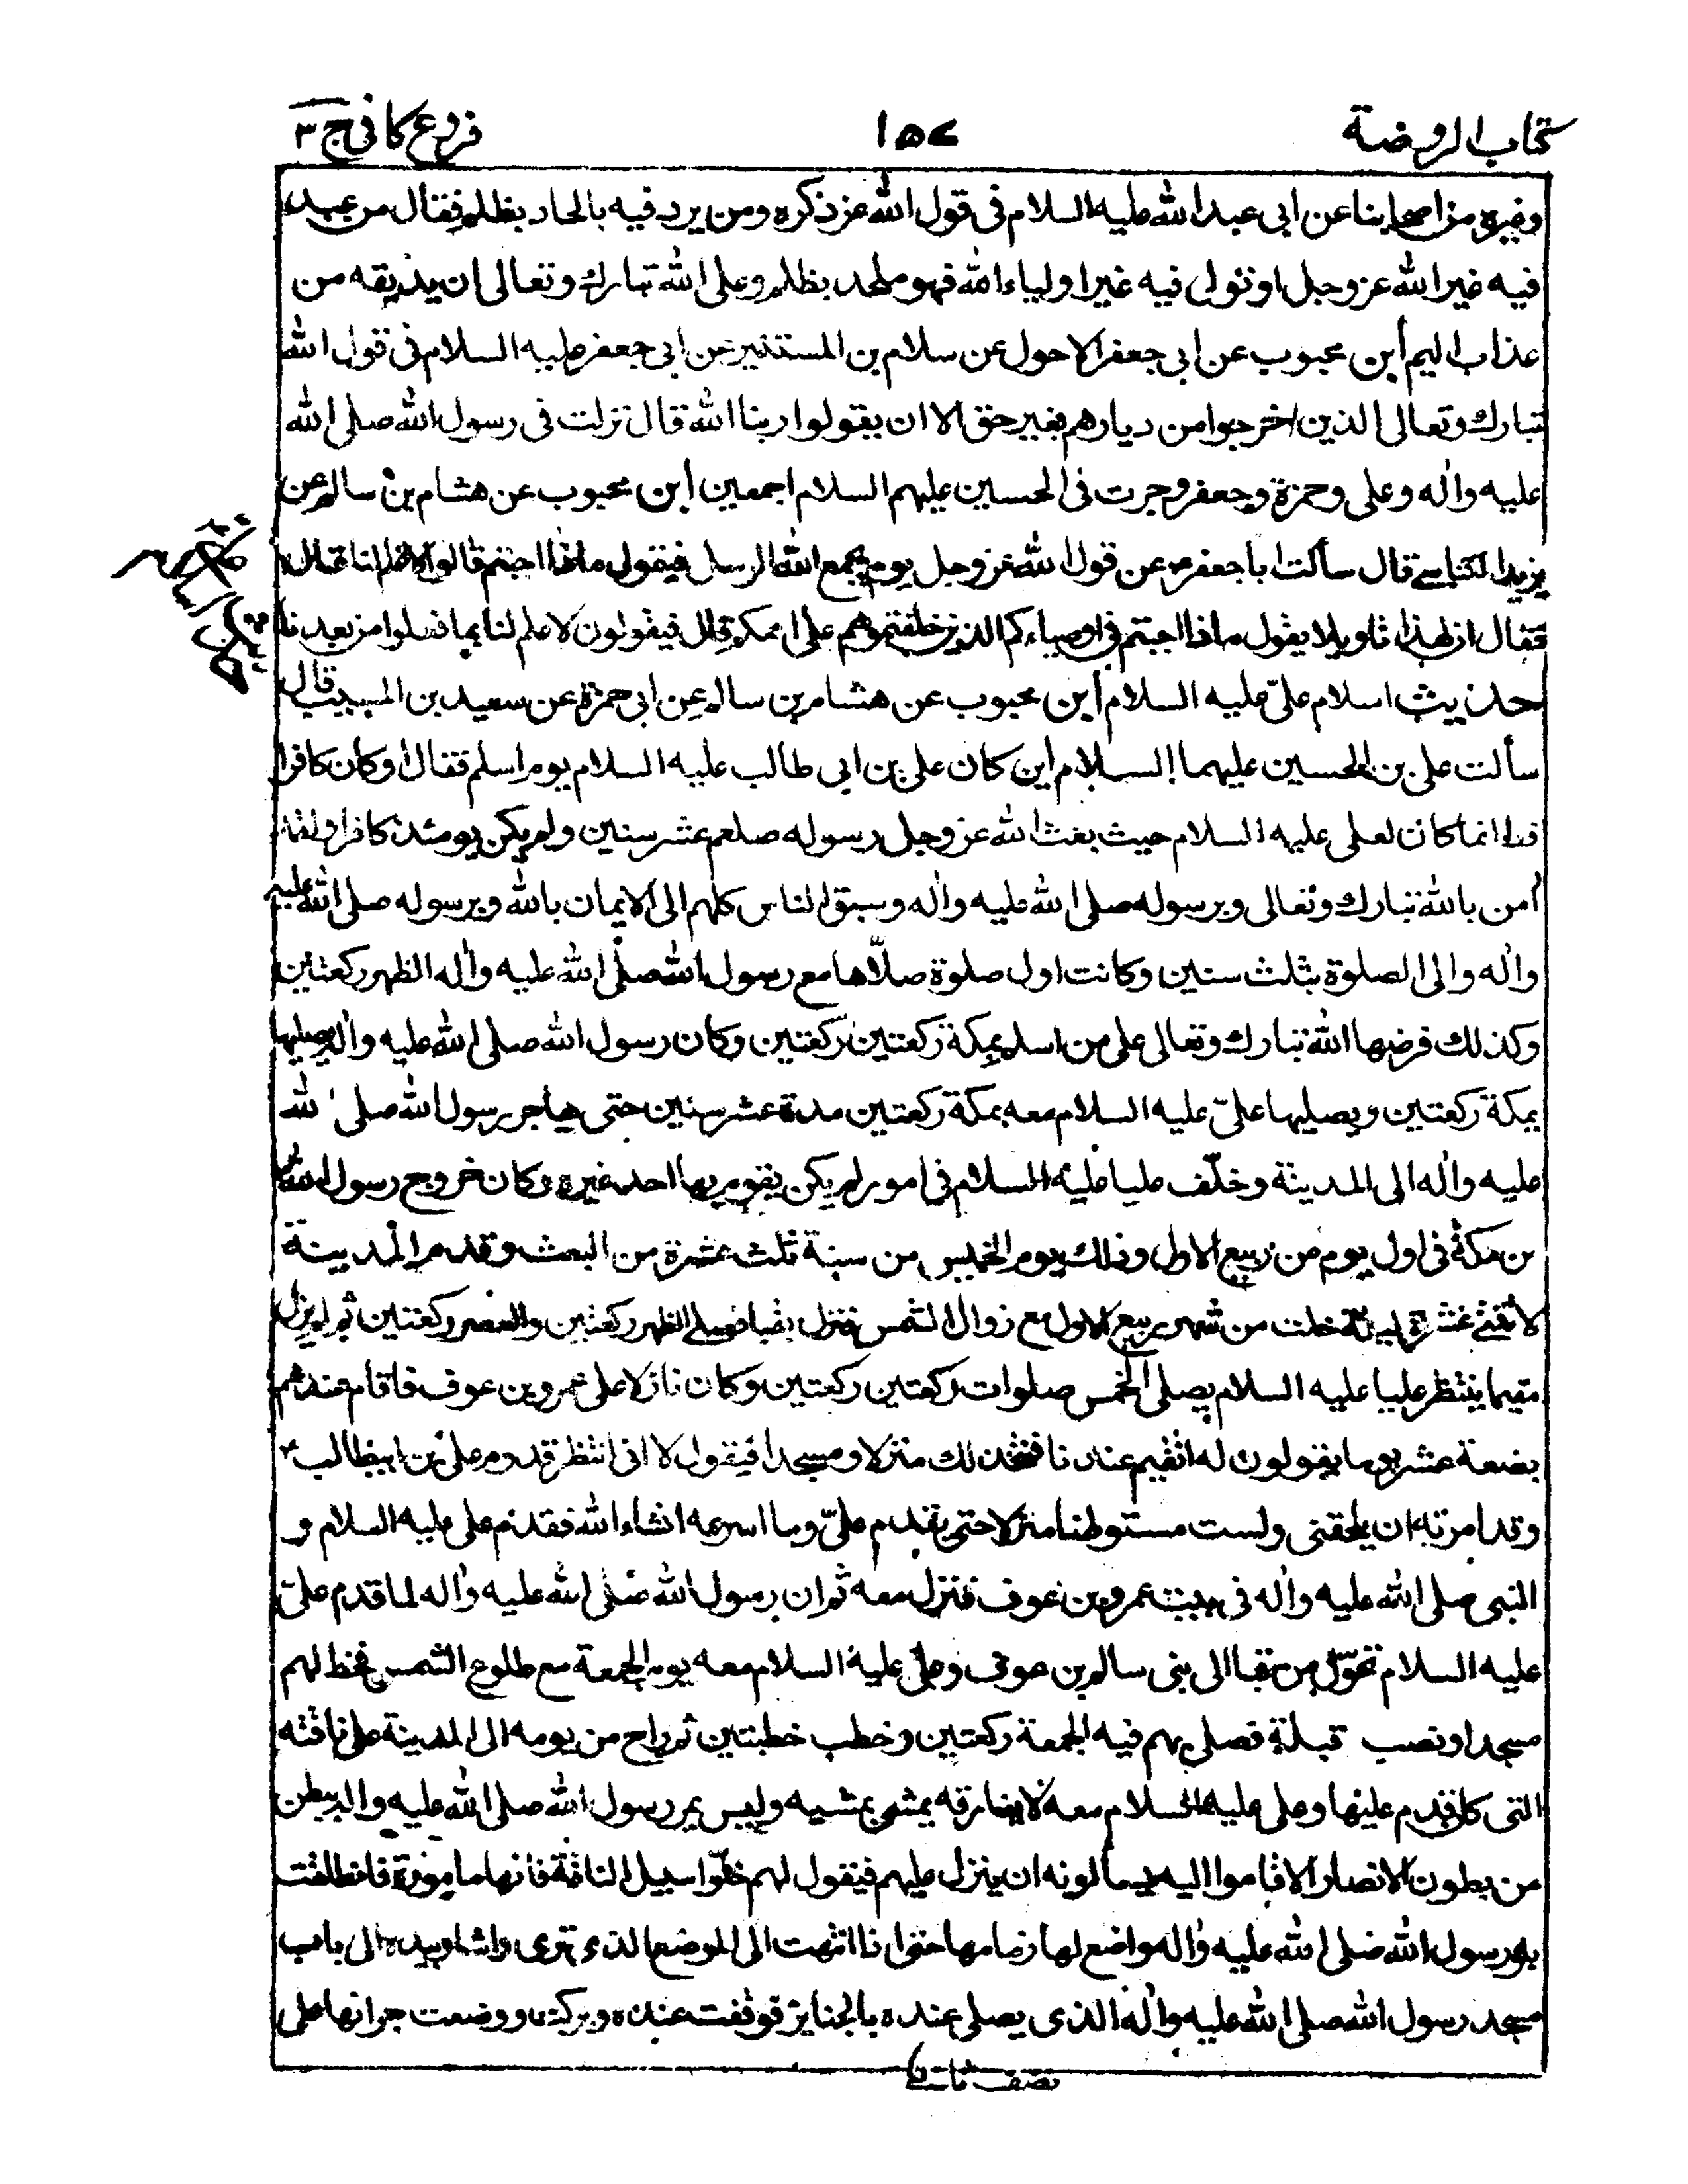 كتاب الروضة ١٥٧ فروع كافى ج ٣
وغيره من اصحابنا عن ابى عبد الله عليه السلام فى قول الله عز ذكره ومن يرد فيه بالحاد بظلم فقال من عبد
فيه غير الله عز وجل او تولى فيه غير اولياء الله فهو ملحد بظلم وعلى الله تبارك وتعالى ان يذيقه من
عذاب اليم ابن محبوب عن ابى جعفر الاحول عن سلام بن المستنير عن ابى جعفر عليه السلام فى قول الله
تبارك وتعالى الذين اخرجوا من ديارهم بغير حق الا ان يقولوا ربنا الله قال نزلت فى رسول الله صلى الله
عليه واله وعلى وحمزة وجعفر وجرت فى الحسين عليهم السلام اجمعين ابن محبوب عن هشام بن سالم عن
يزيد الكناسى قال سألت ابا جعفر ع عن قول الله عز وجل يوم يجمع الله الرسل فيقول ماذا اجبتم قالوا لا علم لنا قال
فقال ان لهذا تاويلا يقول ماذا اجبتم فى اوصياءكم الذين خلفتموهم على اممكم قال فيقولون لا علم لنا بما فعلوا من بعدنا
حديث اسلام علىّ عليه السلام ابن محبوب عن هشام بن سالم عن ابى حمزة عن سعيد بن المسيب قال
سألت على بن الحسين عليهما السلام ابن كان على بن ابى طالب عليه السلام يوم اسلم فقال اوكان كافرا
قط انما كان لعلى عليه السلام حيث بعث الله عز وجل رسوله صلعم عشر سنين ولم يكن يومئذ كافرا ولقد
أمن بالله تبارك وتعالى وبرسوله صلى الله عليه واله وسبق الناس كلهم الى الايمان بالله وبرسوله صلى الله عليه
واله والى الصلوة بثلث سنين وكانت اول صلوة صلّاها مع رسول الله صلى الله عليه واله الظهر ركعتين
وكذلك فرضها الله تبارك وتعالى على من اسلم بمكة ركعتين ركعتين وكان رسول الله صلى الله عليه واله يصليها
بمكة ركعتين ويصليها علىّ عليه السلام معه بمكة ركعتين مدة عشر سنين حتى هاجر رسول الله صلى الله
عليه واله الى المدينة وخلّف عليا عليه السلام فى امور لم يكن يقوم بها احد غيره وكان خروج رسول الله
من مكة فى اول يوم من ربيع الاول وذلك يوم الخميس من سنة ثلث عشرة من البعث وقدم المدينة
لاثنتى عشرة ليلة خلت من شهر ربيع الاول مع زوال الشمس فنزل بقبا فصلى الظهر ركعتين والعصر ركعتين ثم لم يزل
مقيما ينتظر عليا عليه السلام يصلى الخمس صلوات ركعتين ركعتين وكان نازلا على عمرو بن عوف فاقام عندهم
بضعة عشر يوما يقولون له اتقيم عندنا فنتخذ لك منزلا ومسجدا فيقول لا انى انتظر قدوم على بن ابيطالب ع
وقد امرته ان يلحقنى ولست مستوطنا منزلا حتى يقدم علىّ وما اسرعه انشاء الله فقدم على عليه السلام و
النبى صلى الله عليه واله فى بيت عمرو بن عوف فنزل معه ثم ان رسول الله صلى الله عليه واله لما قدم علىّ
عليه السلام تحوّل من قبا الى بنى سالم بن عوف وعلى عليه السلام معه يوم الجمعة مع طلوع الشمس فخط لهم
مسجدا ونصب قبلة فصلى بهم فيه الجمعة ركعتين وخطب خطبتين ثم راح من يومه الى المدينة على ناقته
التى كان قدم عليها وعلى عليه السلام معه لا يفارقه يمشى بمشيه وليس يمر رسول الله صلى الله عليه واله ببطن
من بطون الانصار الا قاموا اليه يسألونه ان ينزل عليهم فيقول لهم خلّوا سبيل الناقة فانها مامورة فانطلقت
به ورسول الله صلى الله عليه واله واضع لها زمامها حتى اذا انتهت الى الموضع الذى ترى واشار بيده الى باب
مسجد رسول الله صلى الله عليه واله الذى يصلى عنده بالجنايز فوقفت عنده وبركت ووضعت جرانها على